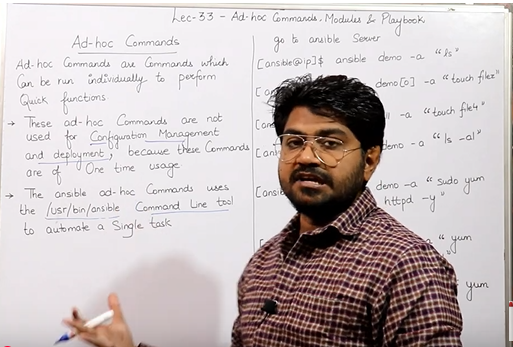 Lec-33 - Ad-hoc Commands, Modules & Playbook
Ad-hoc Commands
Ad-hoc Commands are Commands which
Can be run individually to perform
Quick functions.
→ These ad-hoc Commands are not
used for Configuration Management
and deployment, because these Commands
are of One time usage
→ The ansible ad-hoc Commands uses
the /usr/bin/ansible Command Line tool
to automate a Single task
go to ansible Server
[ansible@ip]$ ansible demo -a "ls"
demo[0] -a "touch filez"
-a "touch file4"
demo -a "ls -al"
demo -a "sudo yum
httpd -y"
-a "yum
yum